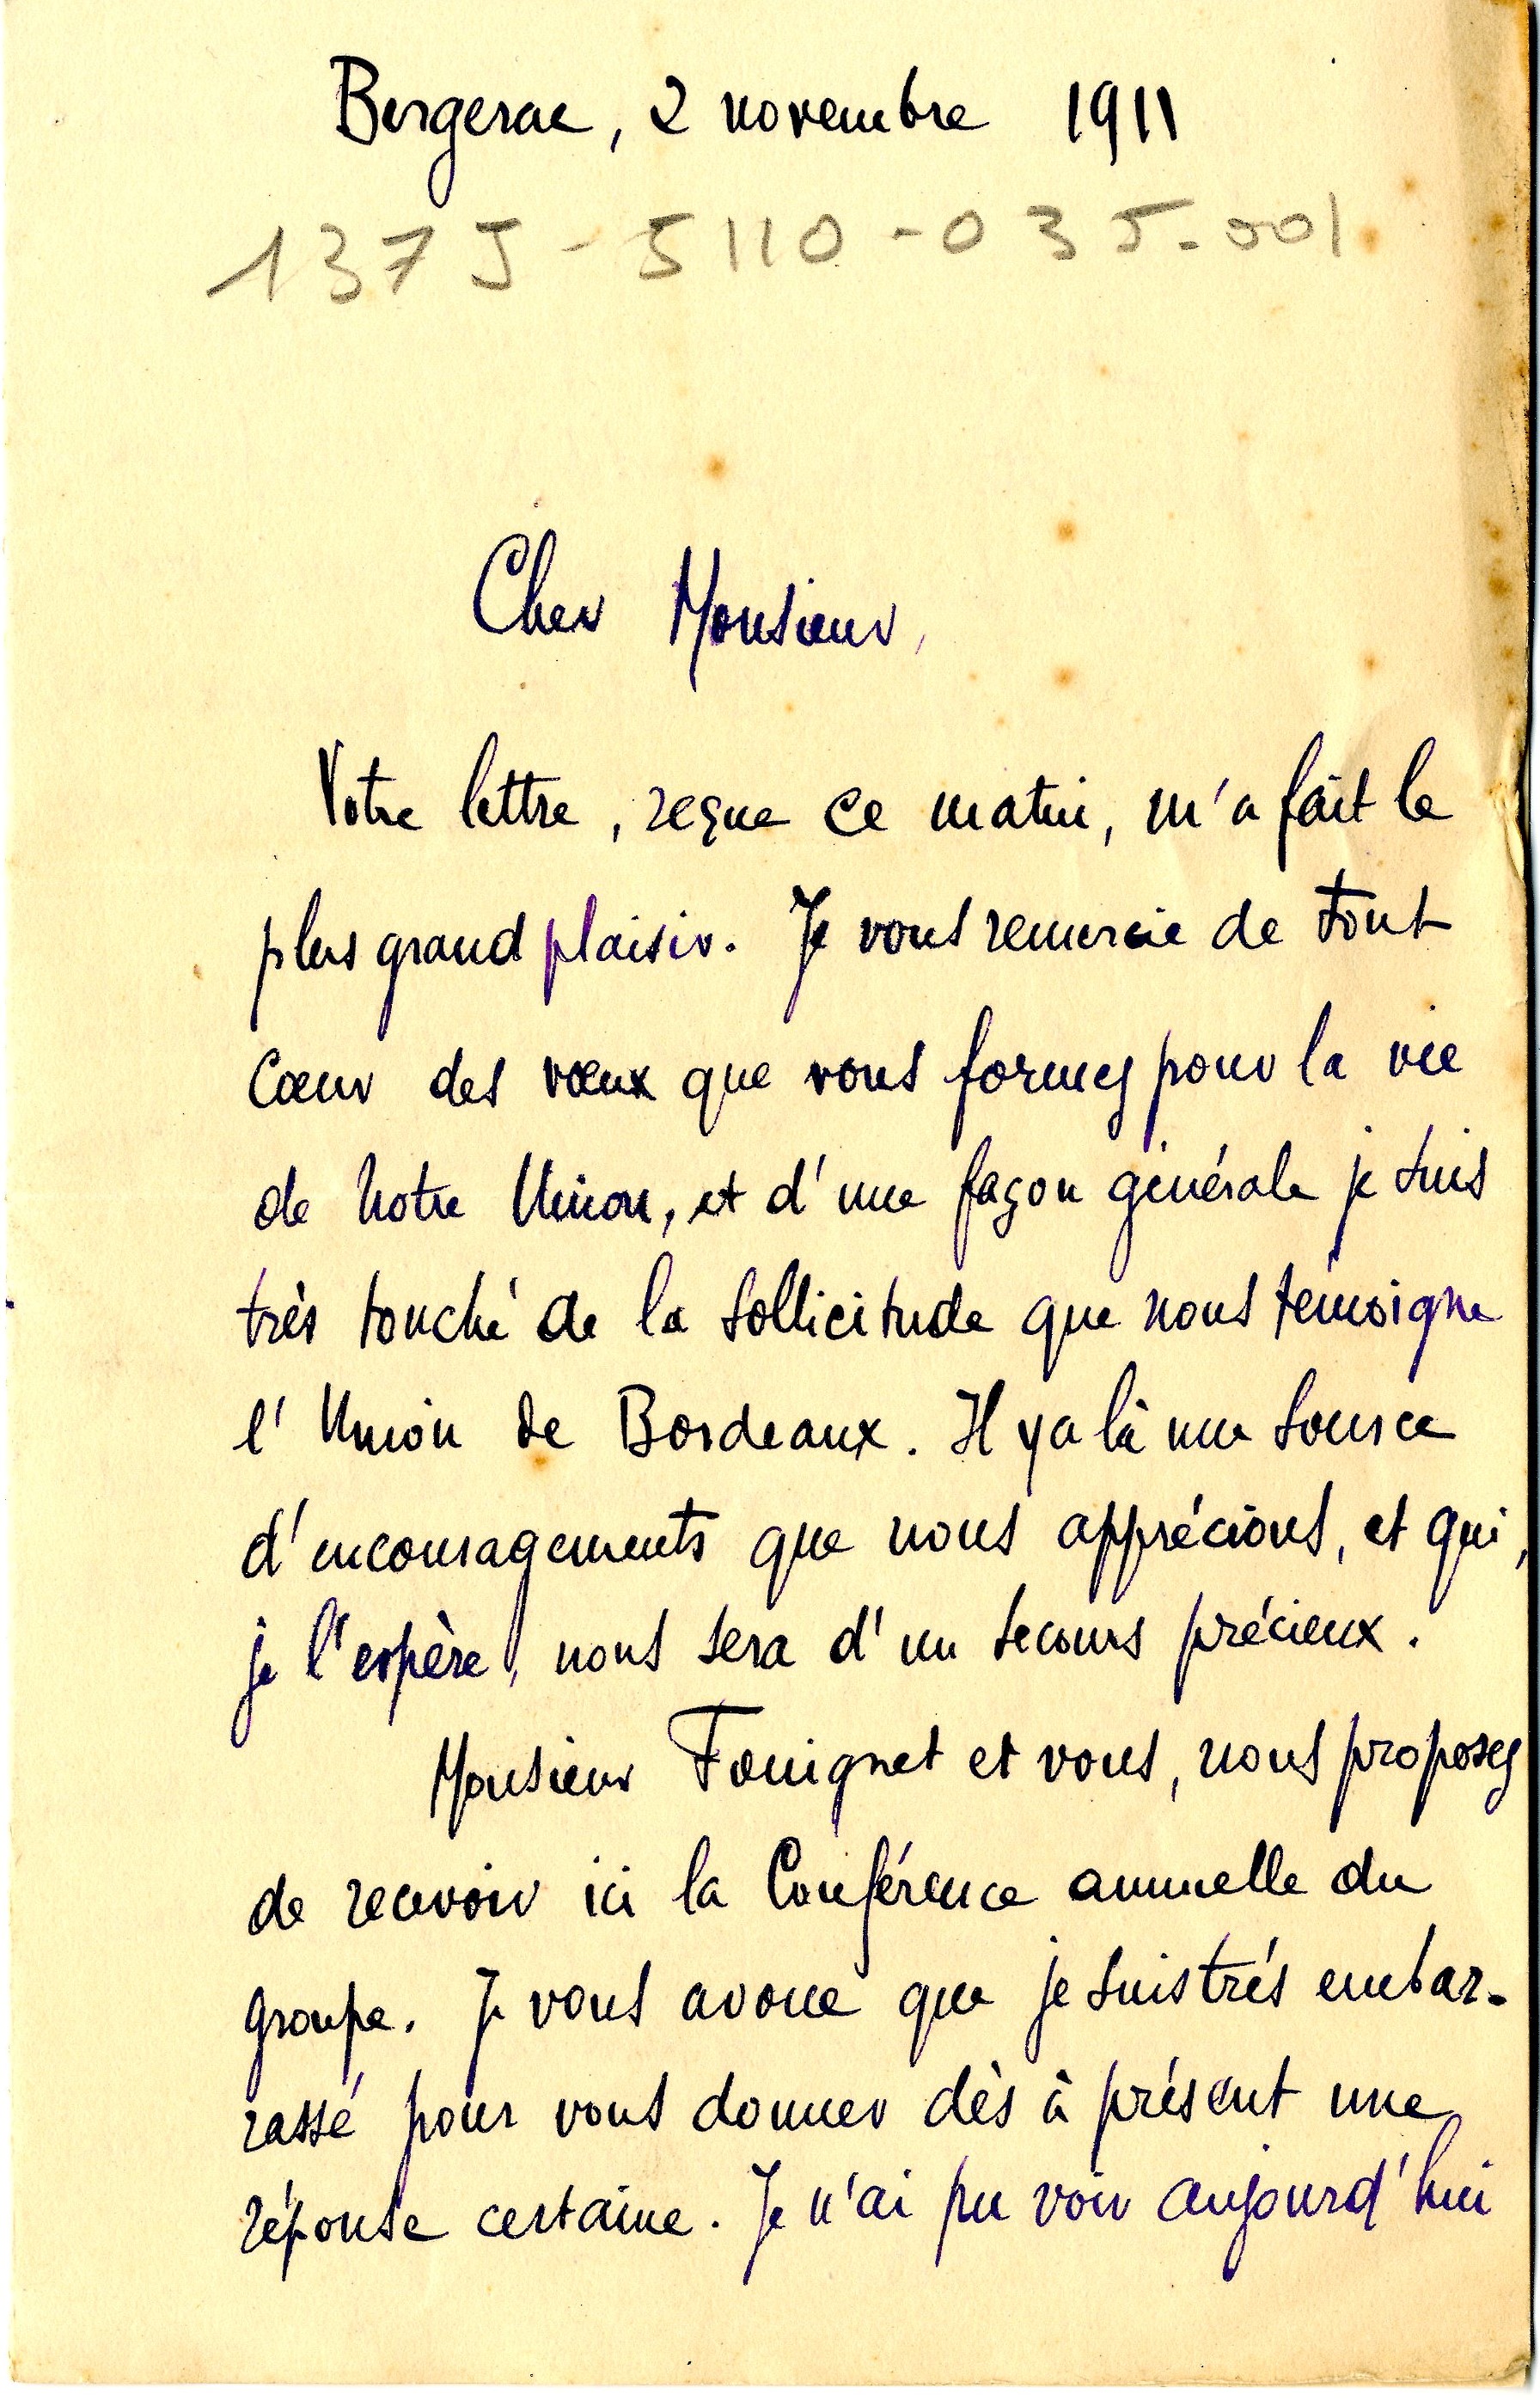 Bergerac, 2 novembre 1911
137J-5110-035-001
Cher Monsieur,
Votre lettre, reçue ce matin, m'a fait le
plus grand plaisir. Je vous remercie de tout
cœur des vœux que vous formez pour la vie
de notre Union, et d'une façon générale je suis
très touché de la sollicitude que nous témoigne
l'Union de Bordeaux. Il y a là une source
d'encouragements que nous apprécions, et qui,
je l'espère, nous sera d'un secours précieux.
Monsieur Fouignet et vous, nous proposez
de recevoir ici la Conférence annuelle du
groupe. Je vous avoue que je suis trés embar-
rassé pour vous donner dès à présent une
réponse certaine. Je n'ai pu voir aujourd'hui